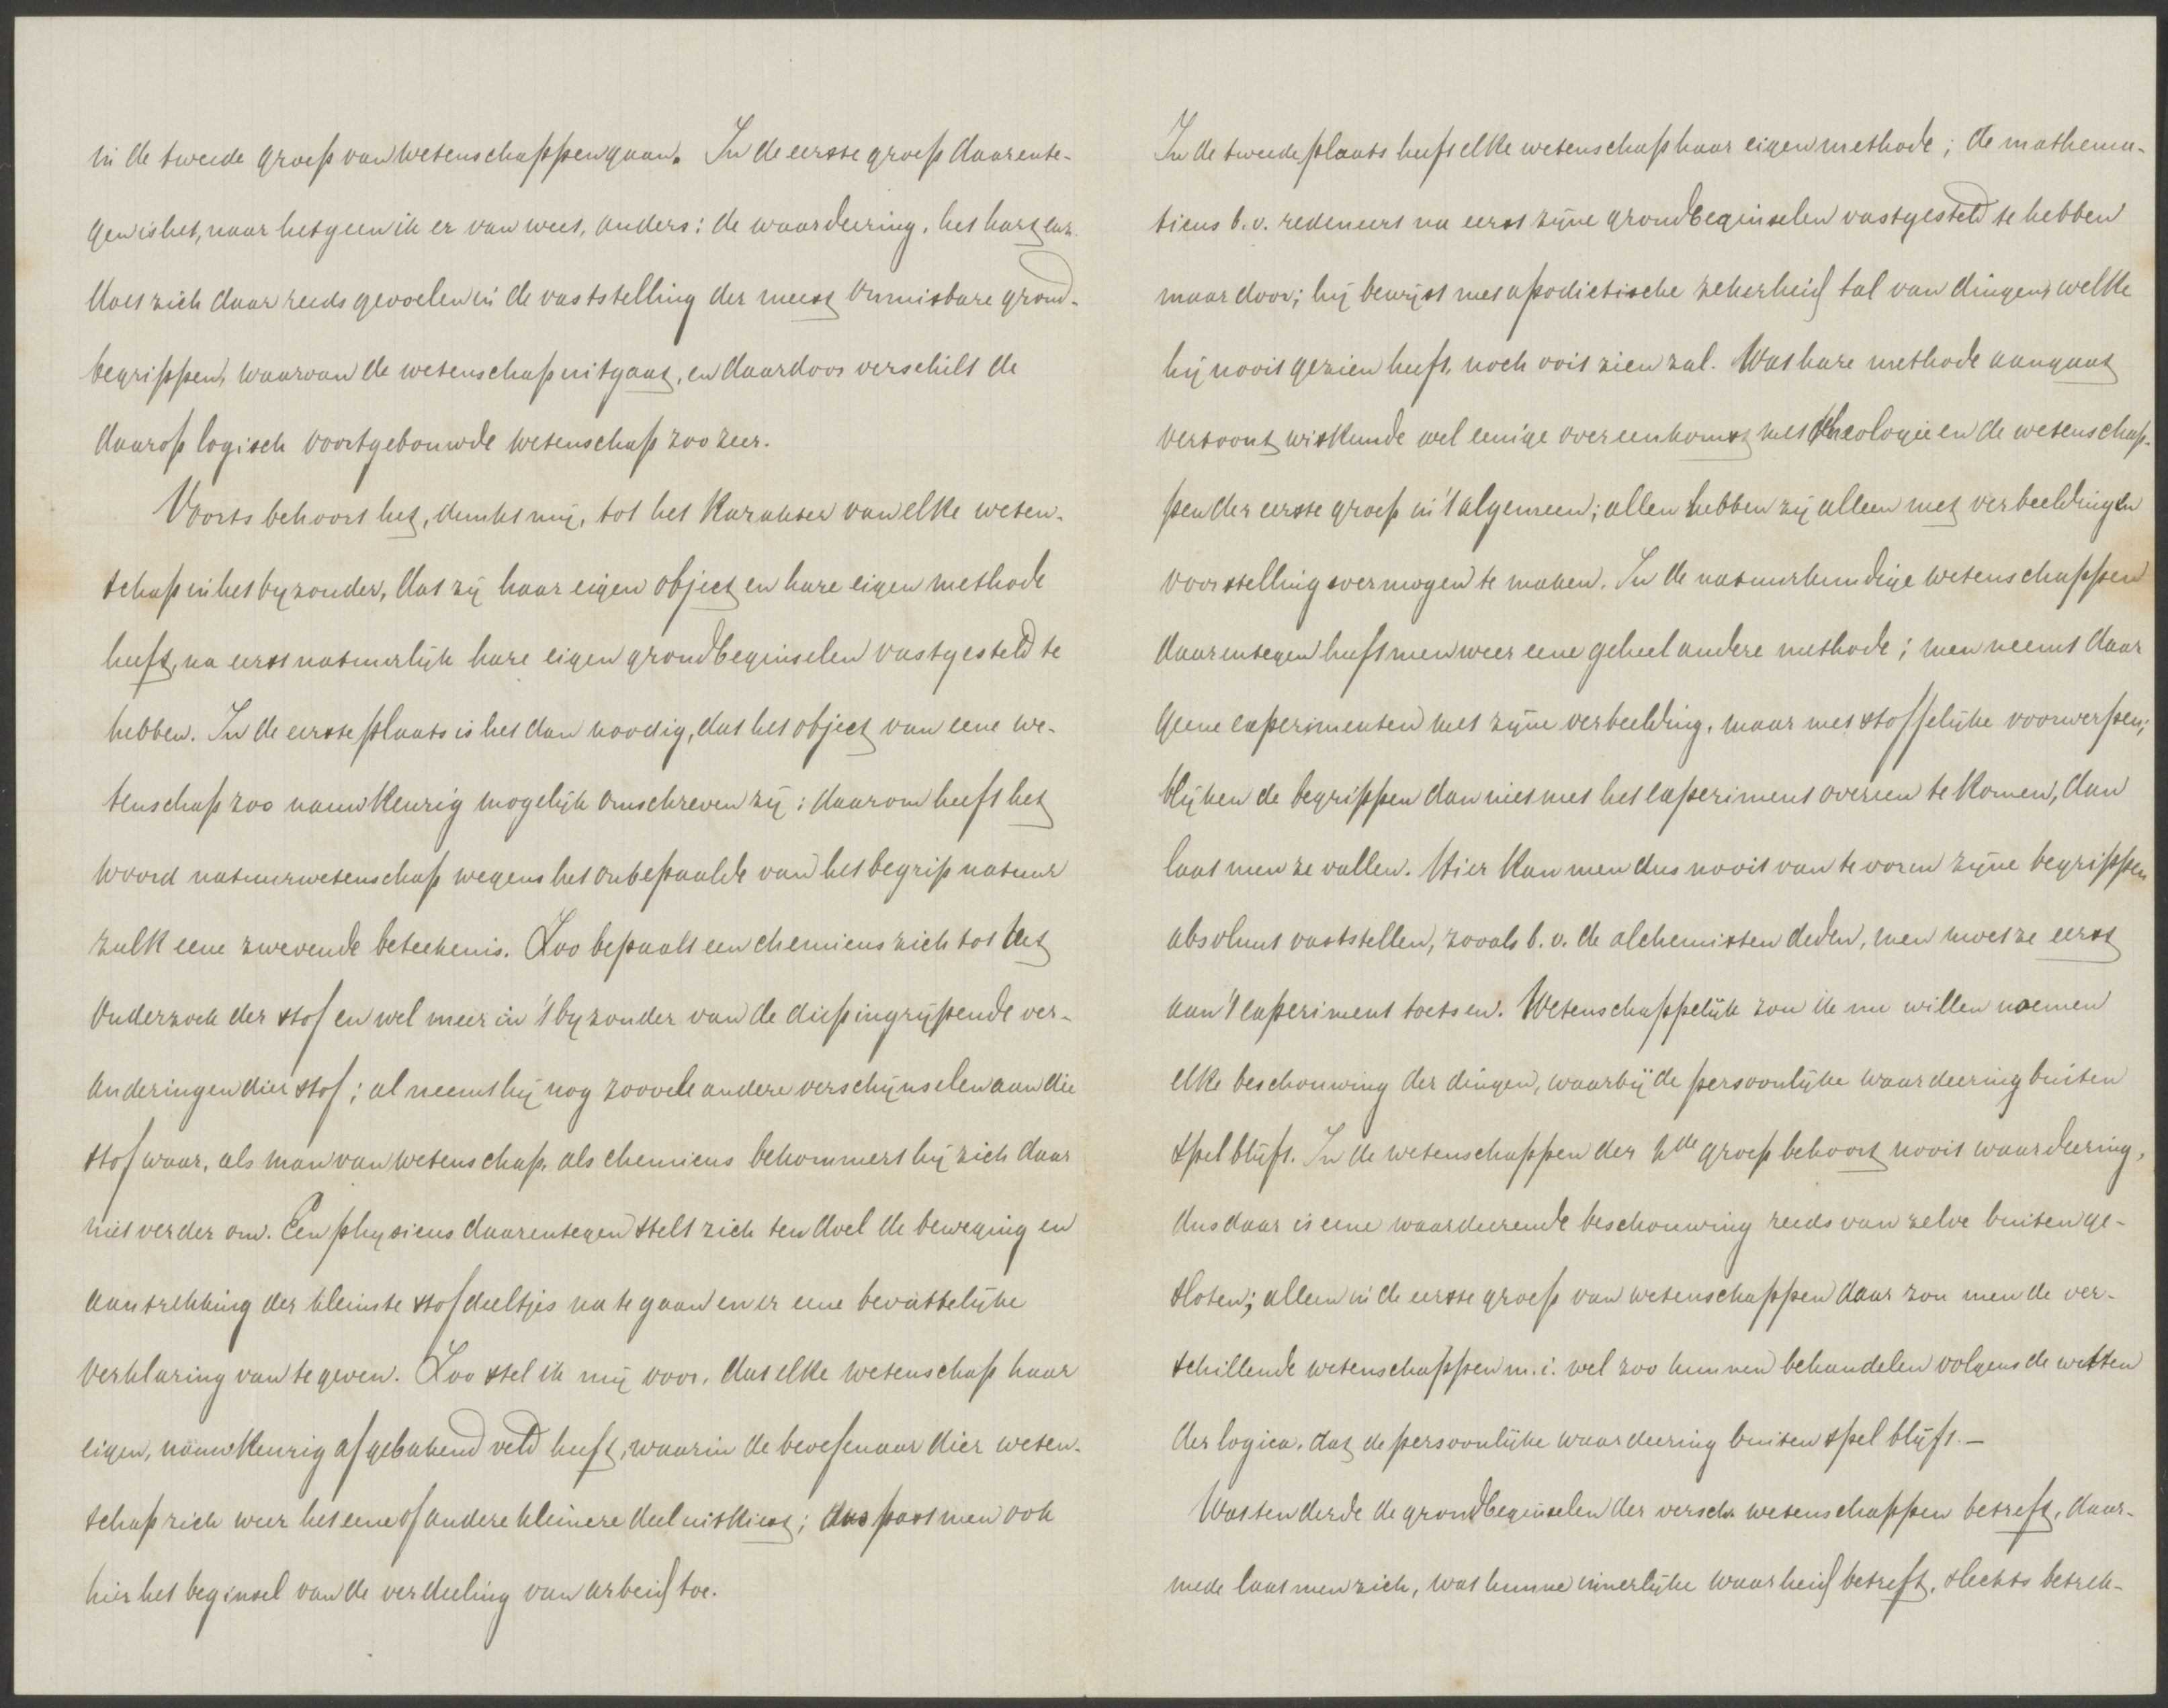 in de tweede groep van wetenschappen gaan. In de eerste groep daarente-
gen is het, naar hetgeen ik er van weet, anders: de waardeering, het hart enz.
doet zich daar reeds gevoelen in de vaststelling der meest onmisbare grond-
begrippen, waarvan de wetenschap uitgaat, en daardoor verschilt de
daarop logisch voortgebouwde wetenschap zoozeer.
Voorts behoort het, dunkt mij, tot het karakter van elke weten-
schap in het byzonder, dat zij haar eigen object en hare eigen methode
heeft, na eerst natuurlijk hare eigen grondbeginselen vastgesteld te
hebben. In de eerste plaats is het dan noodig, dat het object van eene we-
tenschap zoo nauwkeurig mogelijk omschreven zij; daarom heeft het
woord natuurwetenschap wegens het onbepaalde van het begrip natuur
zulk eene zwevende beteekenis. Zoo bepaalt een chemicus zich tot het
onderzoek der stof en wel meer in 't byzonder van de diepingrijpende ver-
anderingen dier stof; al neemt hij nog zoovele andere verschijnselen aan die
stof waar, als man van wetenschap, als chemicus bekommert hij zich daar
niet verder om. Een physicus daarentegen stelt zich ten doel de beweging en
aantrekking der kleinste stofdeeltjes na te gaan en er eene bevattelijke
verklaring van te geven. Zoo stel ik mij voor, dat elke wetenschap haar
eigen, nauwkeurig afgebakend veld heeft, waarin de beoefenaar dier weten-
schap zich weer het eene of andere kleinere deel uitkiest; dus past men ook
hier het beginsel van de verdeeling van arbeid toe.
In de tweede plaats heeft elke wetenschap haar eigen methode; de mathema-
ticus b.v. redeneert na eerst zijne grondbeginselen vastgesteld te hebben
maar door; hij bewijst met apodictische zekerheid tal van dingen, welke
hij nooit gezien heeft, noch ooit zien zal. Wat hare methode aangaat
vertoont wiskunde wel eenige overeenkomst met theologie en de wetenschap-
pen der eerste groep in 't algemeen; allen hebben zij alleen met verbeelding en
voorstellingsvermogen te maken. In de natuurkundige wetenschappen
daarentegen heeft men weer eene geheel andere methode; men neemt daar
geene experimenten met zijne verbeelding, maar met stoffelijke voorwerpen;
blijken de begrippen dan niet met het experiment overeen te komen, dan
laat men ze vallen. Hier kan men dus nooit van te voren zijne begrippen
absoluut vaststellen, zooals b.v. de alchemisten deden, men moet ze eerst
aan 't experiment toetsen. Wetenschappelijk zou ik nu willen noemen
elke beschouwing der dingen, waarbij de persoonlijke waardeering buiten
spel blijft. In de wetenschappen der 2de groep behoort nooit waardeering,
dus daar is eene waardeerende beschouwing reeds van zelve buitenge-
sloten; alleen in de eerste groep van wetenschappen daar zou men de ver-
schillende wetenschappen m.i. wel zoo kunnen behandelen volgens de wetten
der logica, dat de persoonlijke waardeering buiten spel blijft.—
Wat ten derde de grondbeginselen der versch. wetenschappen betreft, daar-
mede laat men zich, wat hunne innerlijke waarheid betreft, slechts betrek-